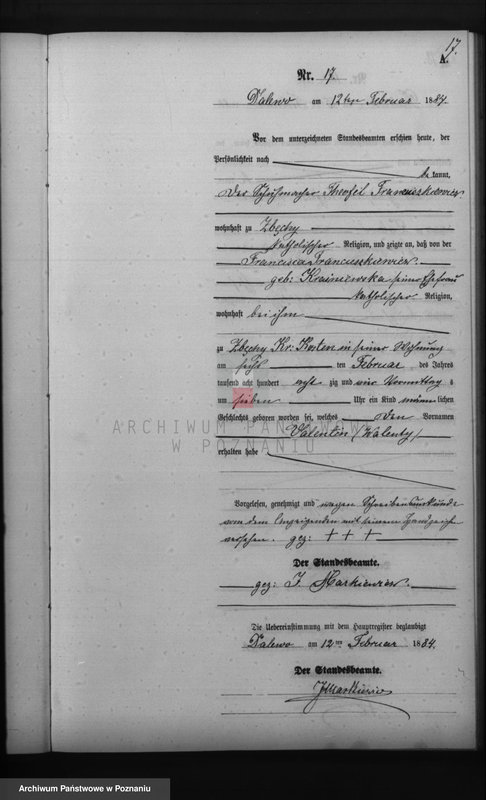 17.
A.
Nr. 17.
Dalewo am 12ten Februar 1884.
Vor dem unterzeichneten Standesbeamten erschien heute, der
Persönlichkeit nach
be kannt,
Der Schuhmacher Theofil Franciszkiewicz
wohnhaft zu Zbęchy
katholischer Religion, und zeigte an, daß von der
Francisca Franciszkiewicz
geb: Krainiewska seiner Ehefrau
katholischer Religion,
wohnhaft bei ihm
zu Zbęchy Kr: Kosten in seiner Wohnung
am sechs ten Februar des Jahres
tausend acht hundert acht zig und vier Vormittag s
um sieben Uhr ein Kind männlichen
Geschlechts geboren worden sei, welches den Vornamen
Valentin (Walenty)
erhalten habe
ARCHIWUM PAŃSTWOWE
W POZNANIU
Vorgelesen, genehmigt und wegen Schreibensunkunde
von dem Anzeigenden mit seinem Handzeichen
versehen. gez: + + +
Der Standesbeamte.
gez: J. Markiewicz.
Die Uebereinstimmung mit dem Hauptregister beglaubigt
Dalewo am 12ten Februar 1884.
Der Standesbeamte.
JMarkiewicz
Archiwum Państwowe w Poznaniu